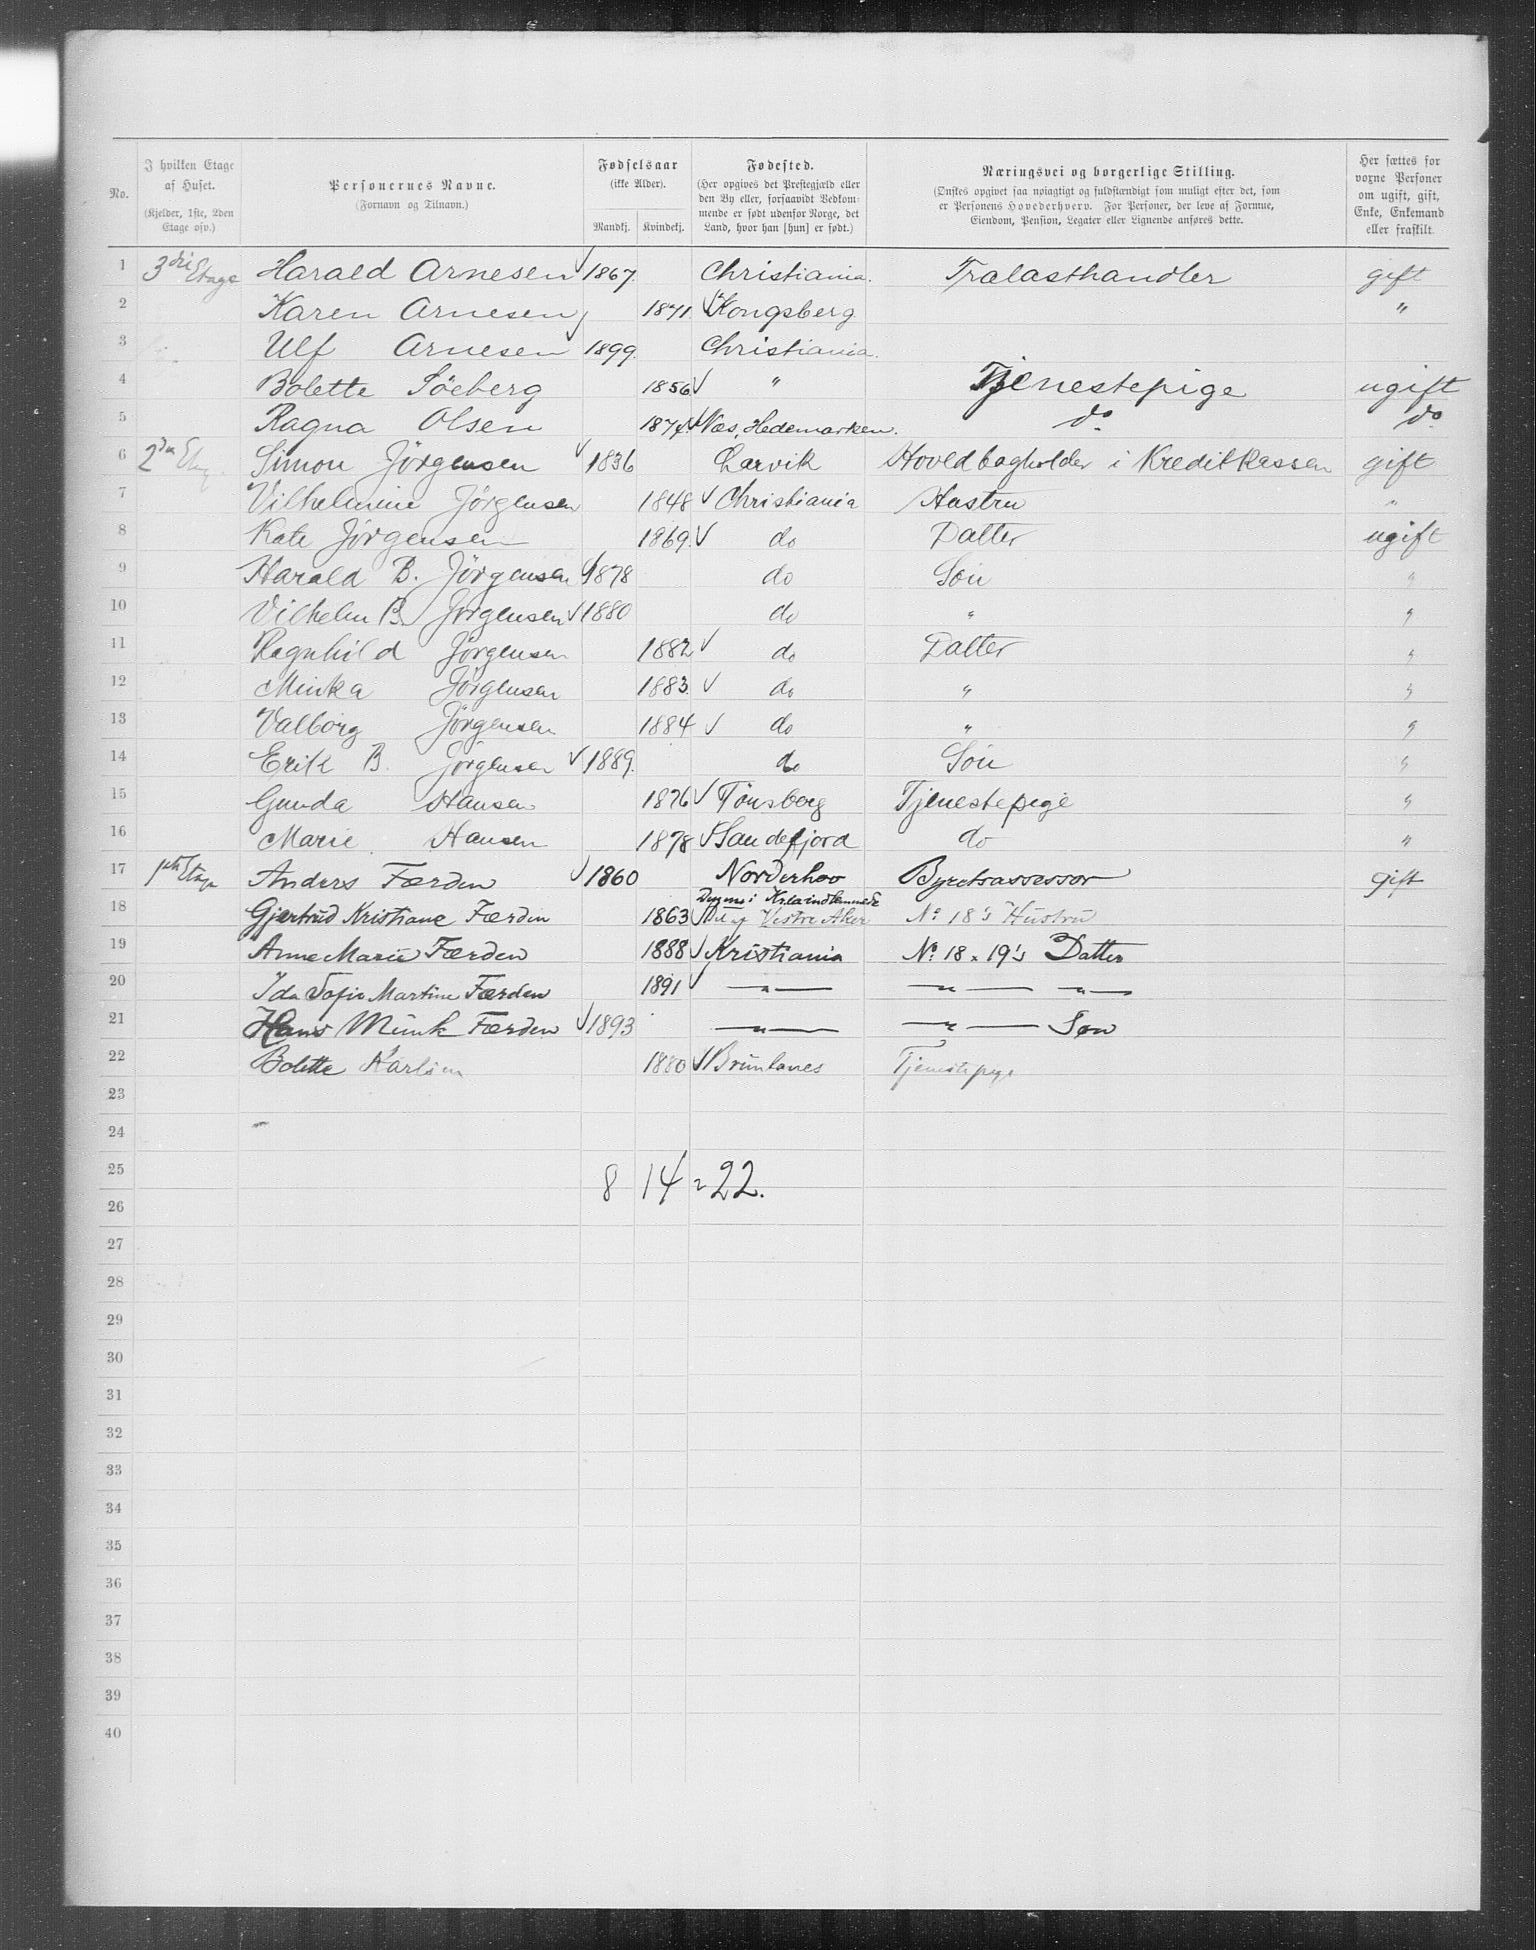 No. | I hvilken Etage af Huset. (Kjelder, 1ste, 2den Etage osv.) | Personernes Navne. (Fornavn og Tilnavn.) | Fødselsaar (ikke Alder). Mandkj. | Kvindekj. | Fødested. (Her opgives det Prestegjæld eller den By eller, forsaavidt Vedkommende er født udenfor Norge, det Land, hvor han [hun] er født.) | Næringsvei og borgerlige Stilling. (Ønskes opgivet saa nøiagtigt og fuldstændigt som muligt efter det, som er Personens Hovederhverv. For Personer, der leve af Formue, Eiendom, Pension, Legater eller Lignende anføres dette. | Her sættes for voxne Personer om ugift, gift, Enke, Enkemand eller fraskilt.
1 3die Etage Harald Arnesen √ 1867. Christiania. Trælasthandler gift
2 Karen Arnesen 1871. √ Kongsberg "
3 Ulf Arnesen √ 1899. Christiania.
4 Bolette Söeberg 1856 √ " Tjenestepige ugift
5 Ragna Olsen 1874. √ Næs, Hedemarken. do. do.
6 2den Etage Simon Jörgensen √ 1836 Larvik Hovedbogholder i Kreditkassen gift
7 Vilhelmine Jörgensen 1848 √ Christiania Hustru "
8 Kate Jörgensen 1869. √ do Datter ugift
9 Harald B. Jörgensen √ 1878 do Sön "
10 Vilhelm B. Jörgensen √ 1880 do " "
11 Ragnhild Jörgensen 1882 √ do Datter "
12 Minka Jörgensen 1883. √ do " "
13 Valborg Jörgensen 1884 √ do " "
14 Erik B. Jörgensen √ 1889. do Sön "
15 Gunda Hansen 1876 √ Tönsberg Tjenestepige "
16 Marie Hansen 1878 √ Sandefjord do "
17 1ste Etage Anders Færden √ 1860 Norderhov Byretsassessor gift
18 Gjertrud Kristiane Færden 1863 √ Denne i Kr.ia indlemmede Del af Vestre Aker No 18's Hustru
19 Anne Marie Færden 1888 √ Kristiania No 18 & 19's Datter
20 Ida Sofie Martine Færden 1891 √ —"— —"— —"—
21 Hans Munk Færden √ 1893 —"— —"— Søn
22 Bolette Karlsen 1880 √ Brunlanes Tjenestepige
23
24
25 8 14 = 22.
26
27
28
29
30
31
32
33
34
35
36
37
38
39
40